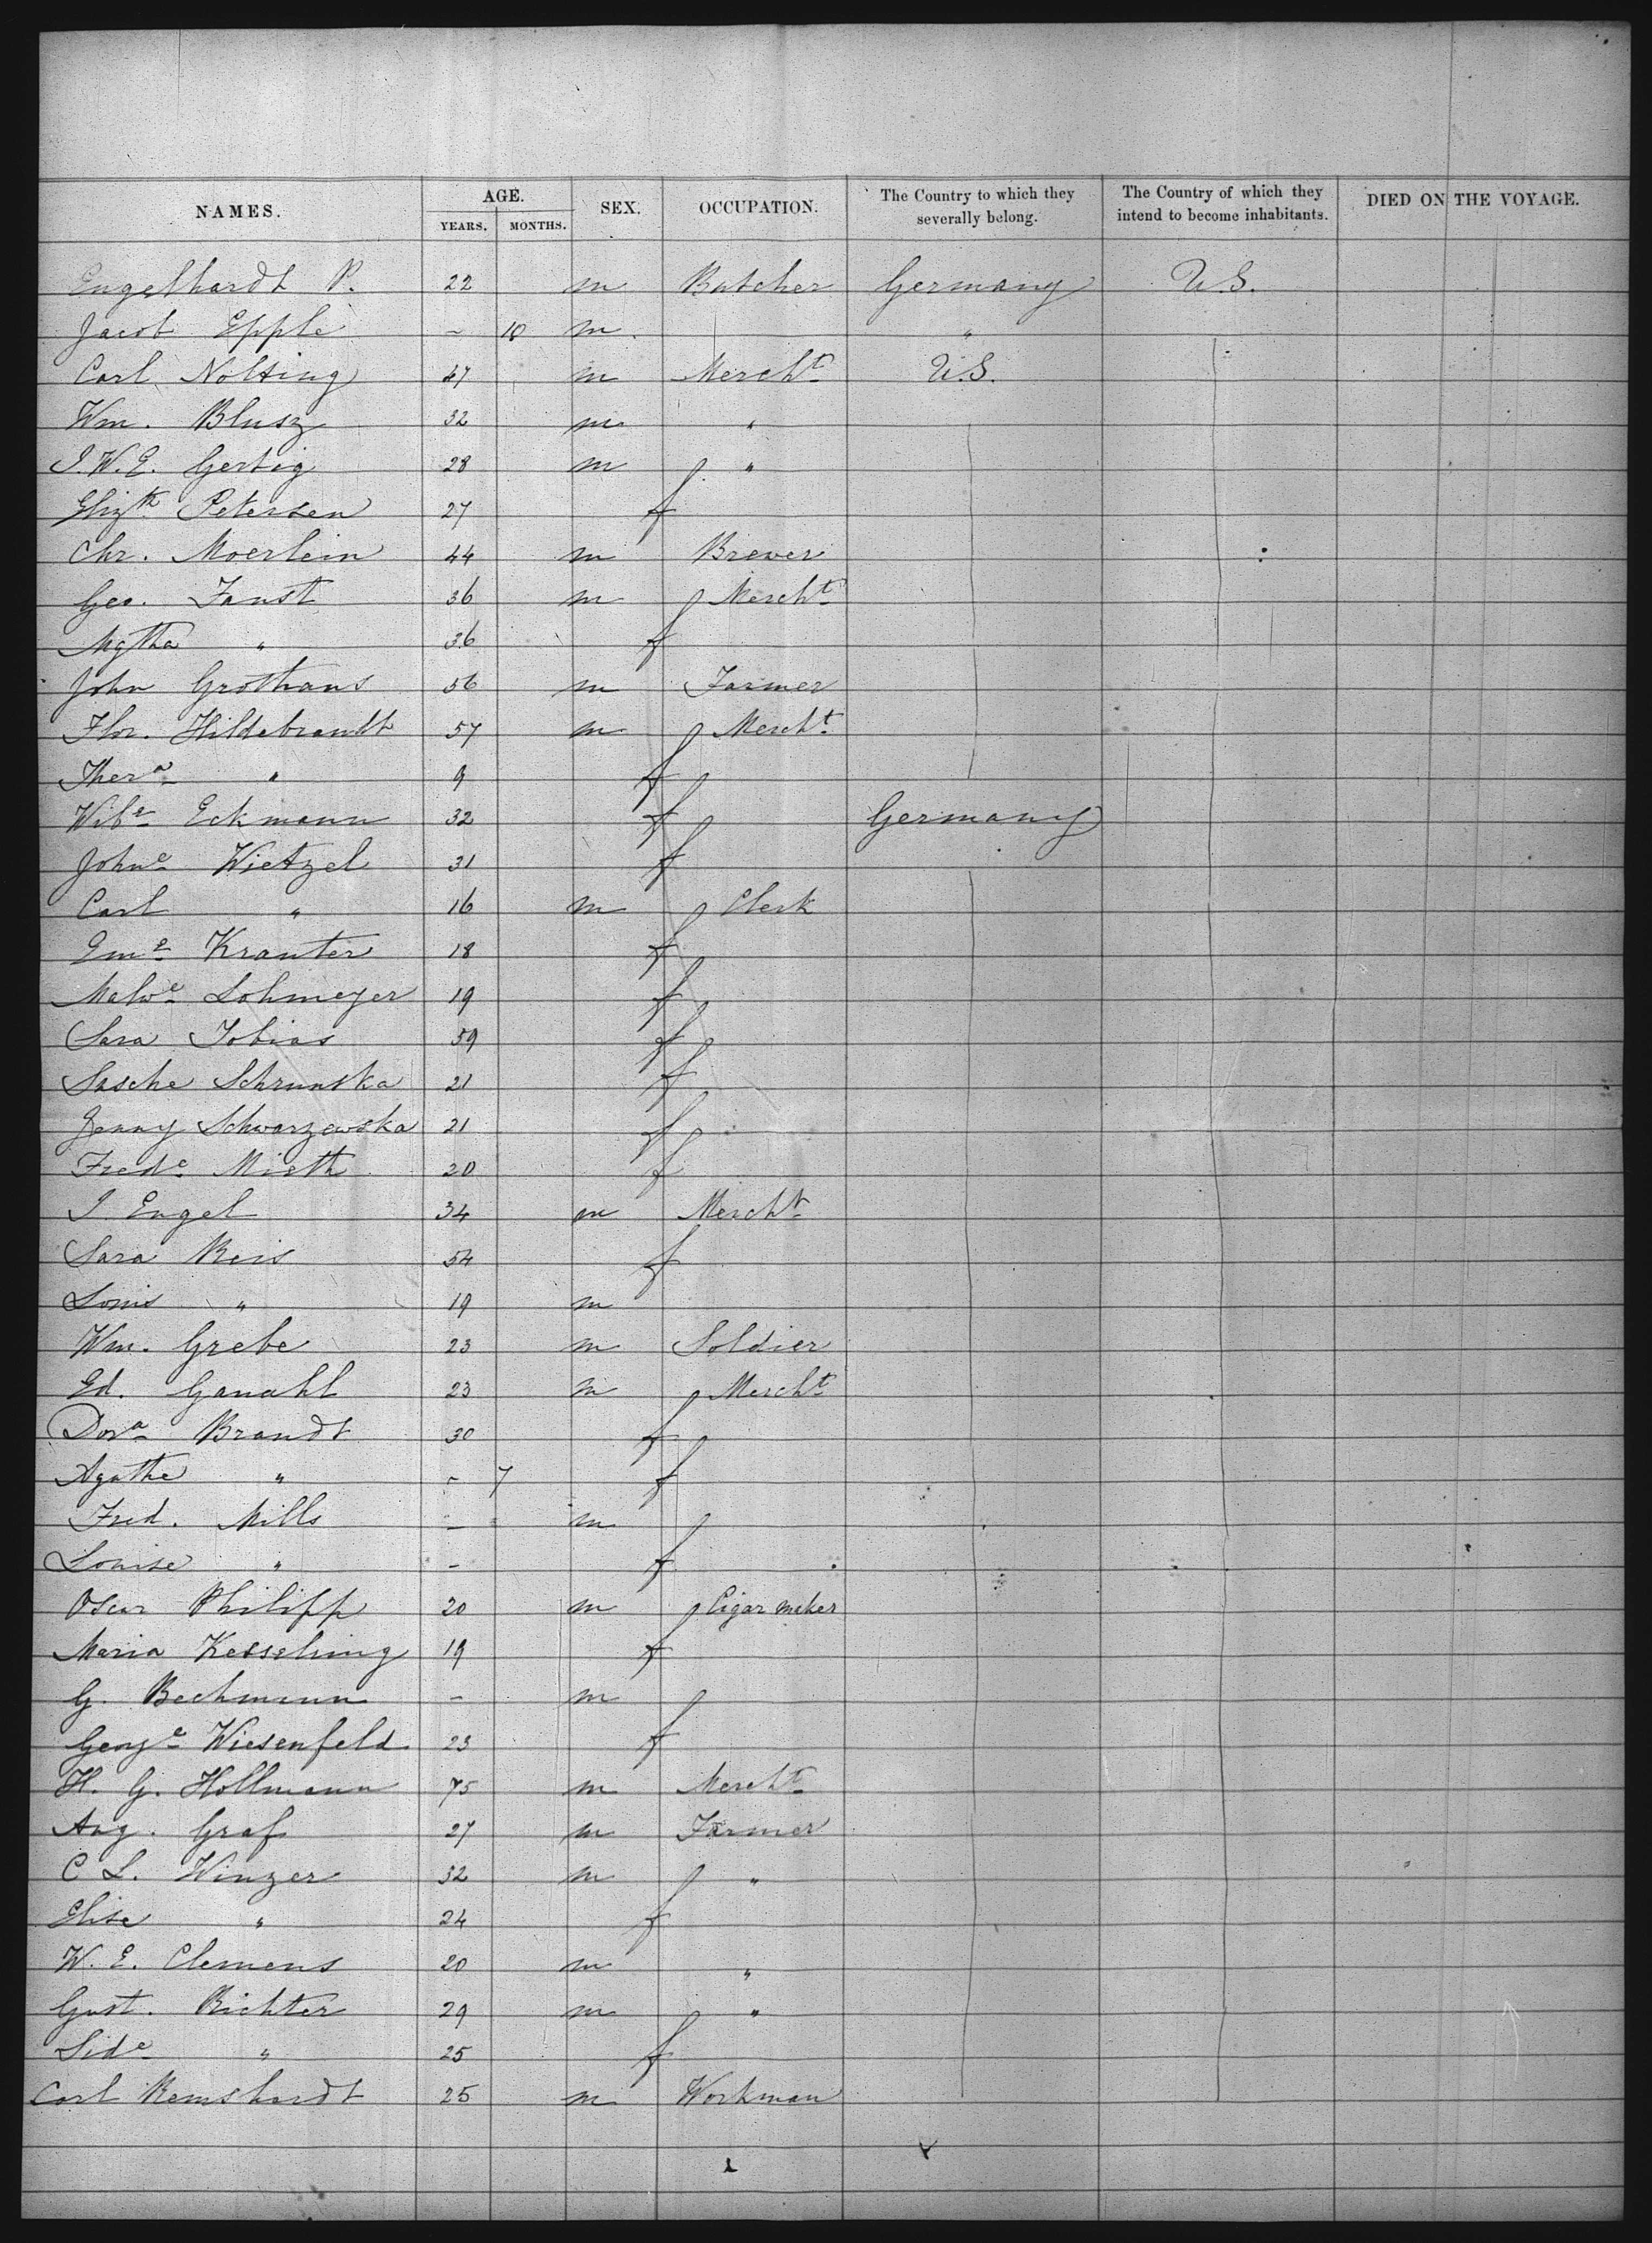 NAMES. AGE. SEX. OCCUPATION. The Country to which they severally belong. The Country of which they intend to become inhabitants. DIED ON THE VOYAGE.
YEARS. MONTHS.
Engelhardt P. 22 m Butcher Germany U.S.
Jacob Epple - 10 m "
Carl Nolting 47 m Mercht U.S.
Wm. Blusz 32 m "
J.W.E. Gertig 28 m "
Elizth Petersen 27 f
Chr. Moerlein 44 m Brewer
Geo. Faust 36 m Mercht
Mgtha " 36 f
John Grothaus 56 m Farmer
Flor. Hildebrandt 57 m Mercht
Thera " 9 f
Wibe Eckmann 32 f Germany
Johne Wietzel 31 f
Carl " 16 m Clerk
Eme Krauter 18 f
Malwe Lohmeyer 19 f
Sara Tobias 59 f
Sasche Schrunska 21 f
Jenny Schwarzewska 21 f
Frede Mieth 20 f
J. Engel 34 m Mercht
Sara Reis 54 f
Louis " 19 m
Wm. Grebe 23 m Soldier
Ed. Ganahl 23 m Mercht
Dora Brandt 30 f
Agathe " - 7 f
Fred. Mills - m
Louise " - f
Oscar Philipp 20 m Cigar maker
Maria Kesseling 19 f
G. Bechmann - m
George Wiesenfeld 23 f
H. G. Hollmann 75 m Mercht
Aug. Graf 27 m Farmer
C L. Winzer 32 m "
Elise " 24 f
W. E. Clemens 20 m "
Gust. Richter 29 m "
Side " 25 f
Carl Remshardt 25 m Workman